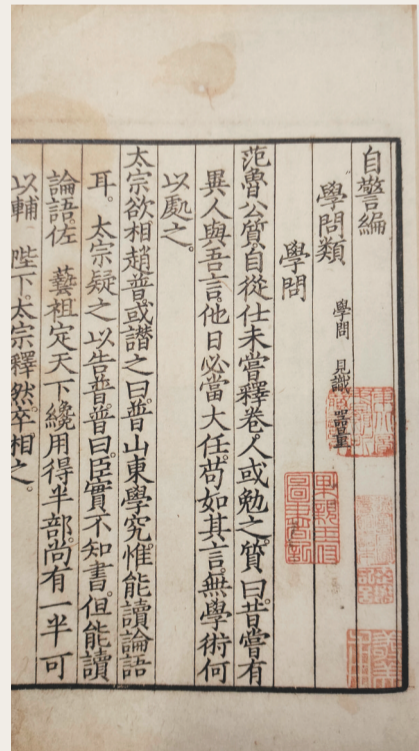 自警編
學問類 學問 見識 器量
學問
范魯公質自從仕未嘗釋卷人或勉之質曰昔嘗有
異人與吾言他日必當大任苟如其言無學術何
以處之。
太宗欲相趙普或譖之曰普山東學究惟能讀論語
耳。太宗疑之以告普普曰臣實不知書但能讀
論語。佐 藝祖定天下纔用得半部尚有一半可
以輔 陛下。太宗釋然卒相之。